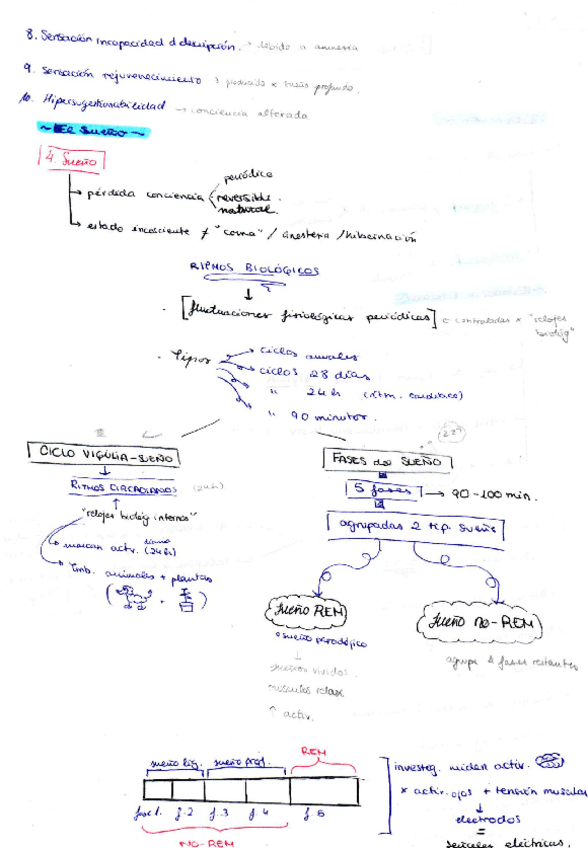 8. Sensación incapacidad d descripción. → debido a amnesia
9. Sensación rejuvenecimiento → producido x sueño profundo.
10. Hipersugestionabilidad → conciencia alterada
~ El Sueño ~
4. Sueño
→ pérdida conciencia
periódica
reversible.
natural.
→ estado incosciente ≠ "coma" / anestesia / hibernación
RITMOS BIOLÓGICOS
[fluctuaciones fisiológicas periódicas] controladas x "relojes biológ"
· Tipos
ciclos anuales
ciclos 28 días
" 24h (ritm. cardíaco)
" 90 minutos.
CICLO VIGILIA-SUEÑO
RITMOS CIRCADIANOS (24h)
"relojes biológ internos"
→ marcan activ. (24h)
→ Tmb. animales + plantas
FASES del SUEÑO
5 fases → 90-100 min.
agrupadas 2 tip. sueño
Sueño REM
sueño paradójico
↓
sueños vividos.
músculos relax
↑ activ.
Sueño NO-REM
agrupa 4 fases restantes
sueño lig. sueño prof. REM
fase 1. f. 2 f. 3 f. 4 f. 5
NO-REM
investig. miden activ.
x activ. ojos + tensión muscular
↓
electrodos
=
señales eléctricas.